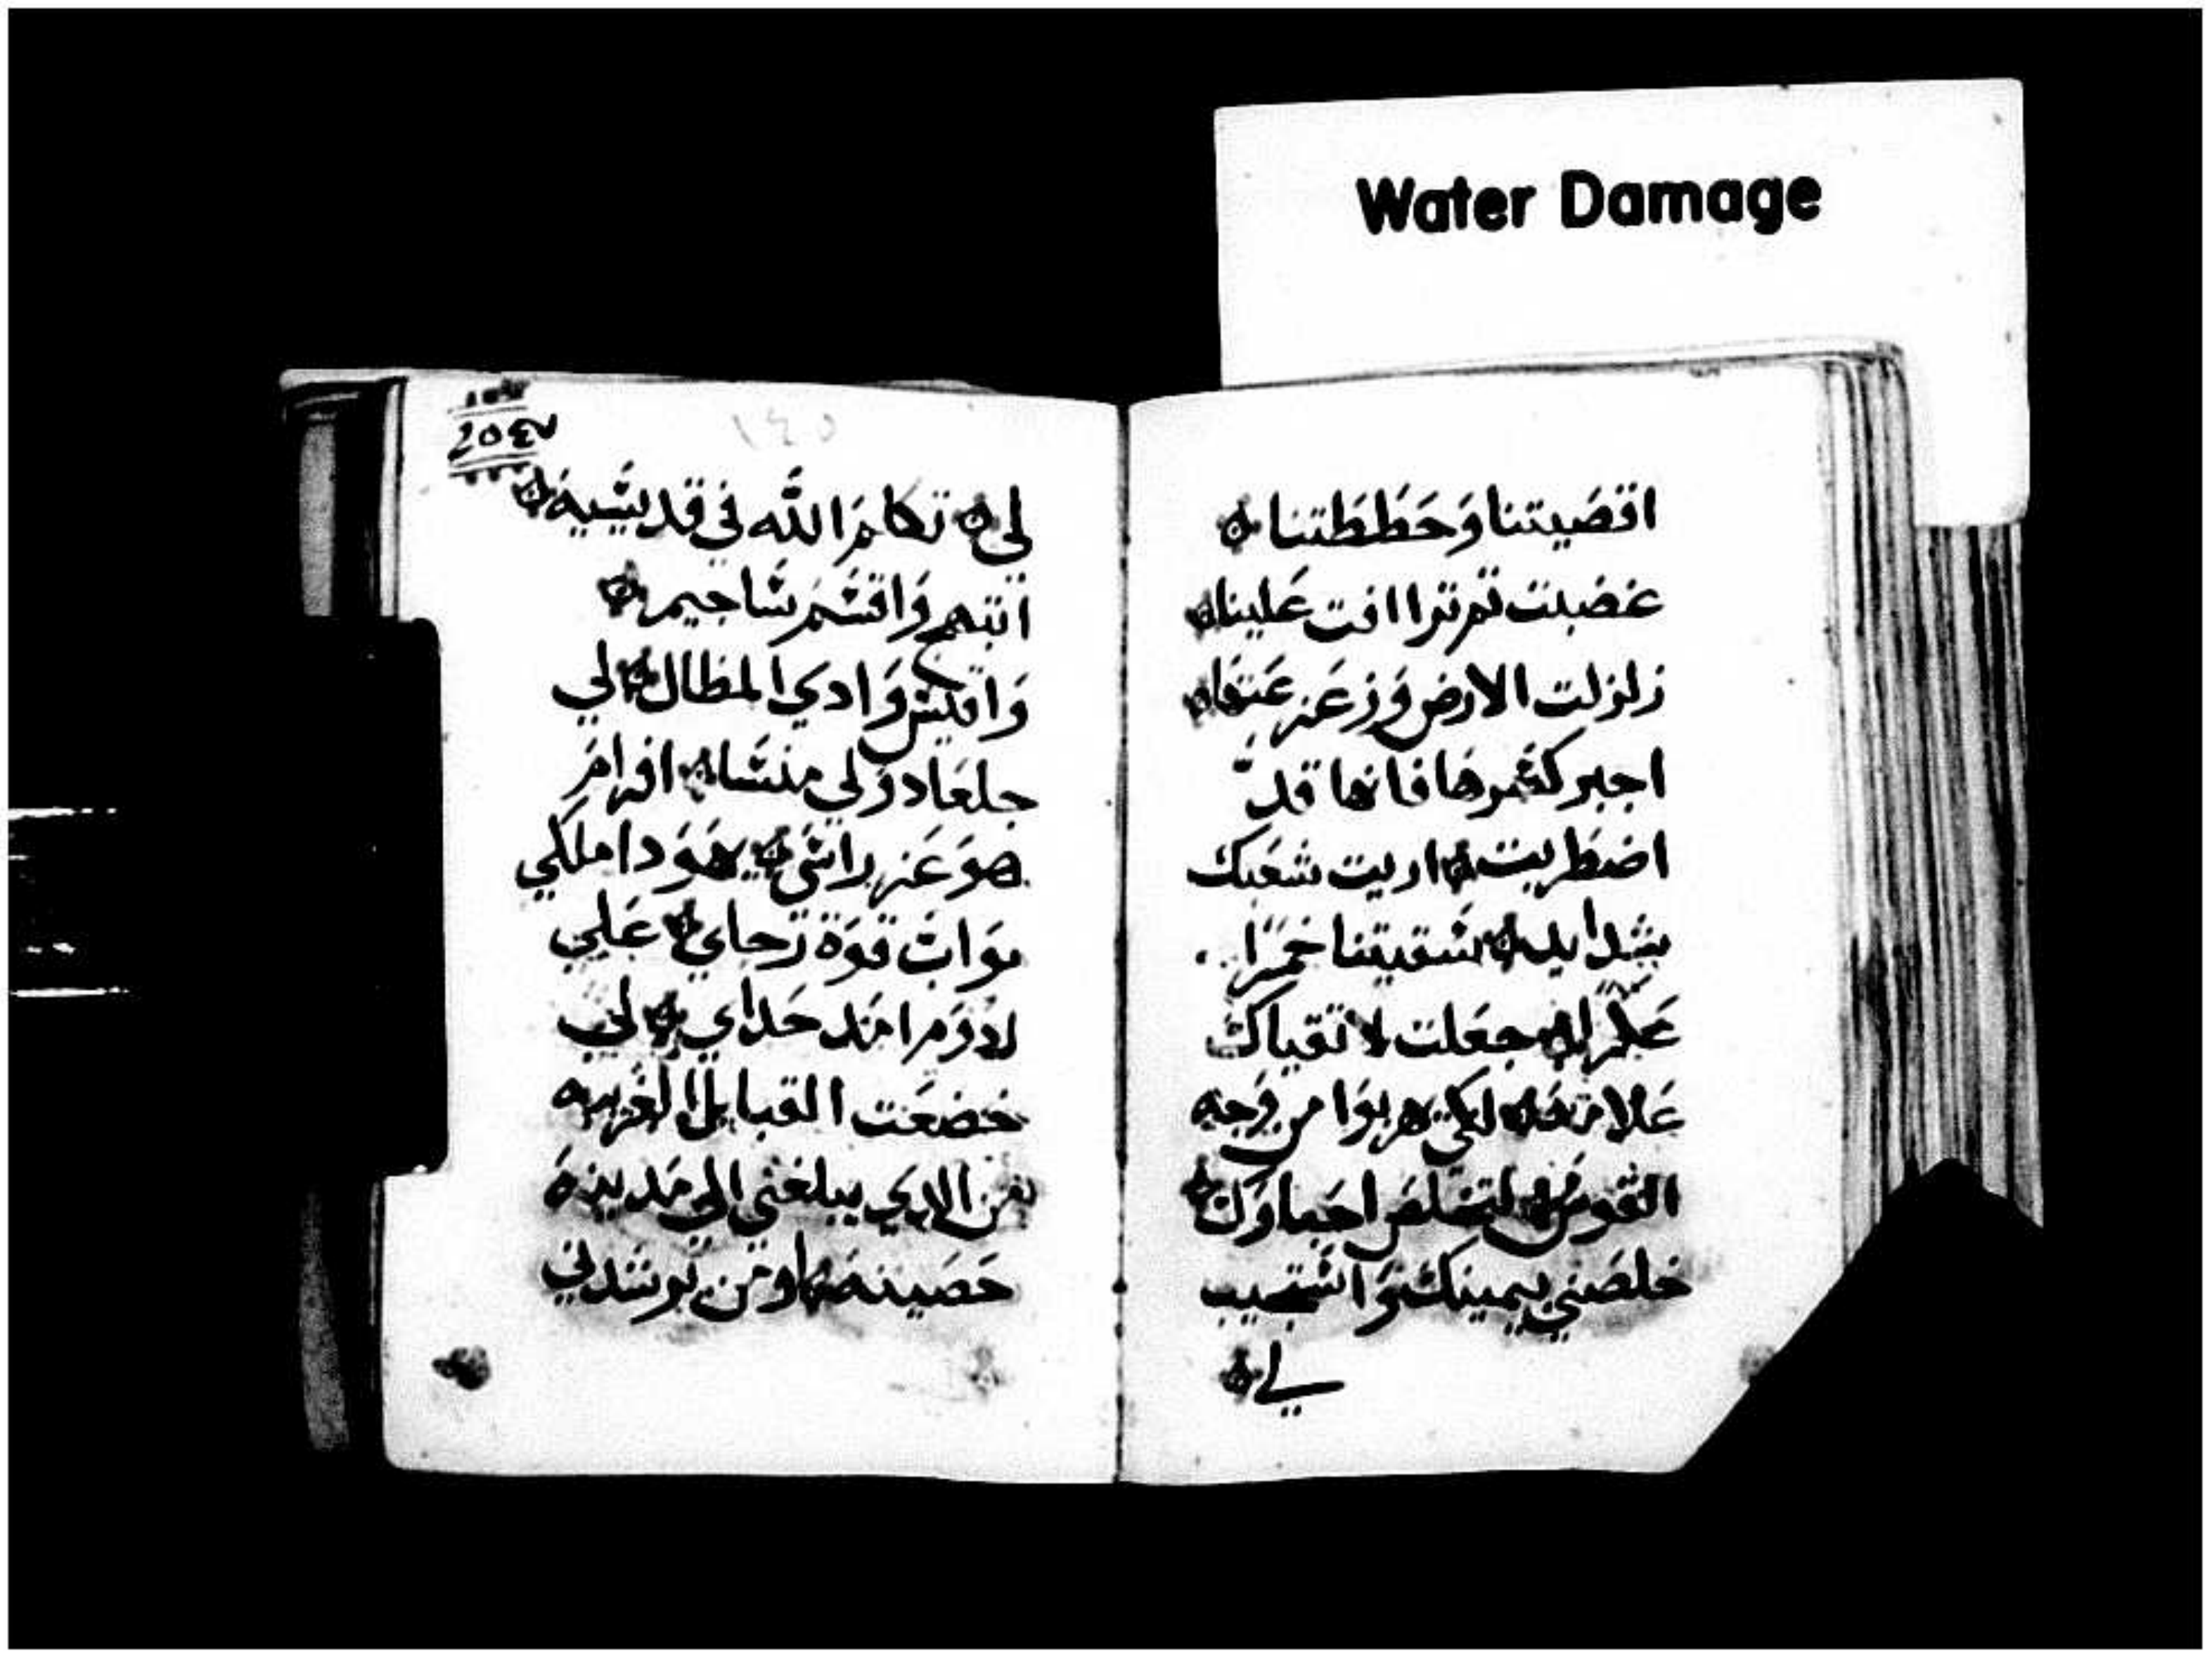 Water Damage
اقصيتنا وَحَطَطتنا
غضبت ثم تراافت عَلينا
زلزلت الارض وَزعَزعَتها
اجبر كسرها فانها قد
اضطربت اريت شعَبك
شدايد سَقيتنا خمرًا
جعَلت لاتقياك
عَلامَه لكي يهربوَا من وَجه
القوس لتخلص احباوَك
خلصَني بيمينك وَاستجيب
لي
١٤٥
لي تكلمَ الله في قديسَيه
ابتهج وَاقسَم سَاجيم
وَاقيس وَادي المظال لي
جلعَاد وَلي منسَا افرامَ
هوَ عَز راسَي يهوَدا ملكي
موَاب قوَة رَجاي عَلي
ادوَم امَد حَداي لي
خضعَت القبايل الغريبه
من الذي يبلغني الي مَدينة
حَصينه اومن يرشدني